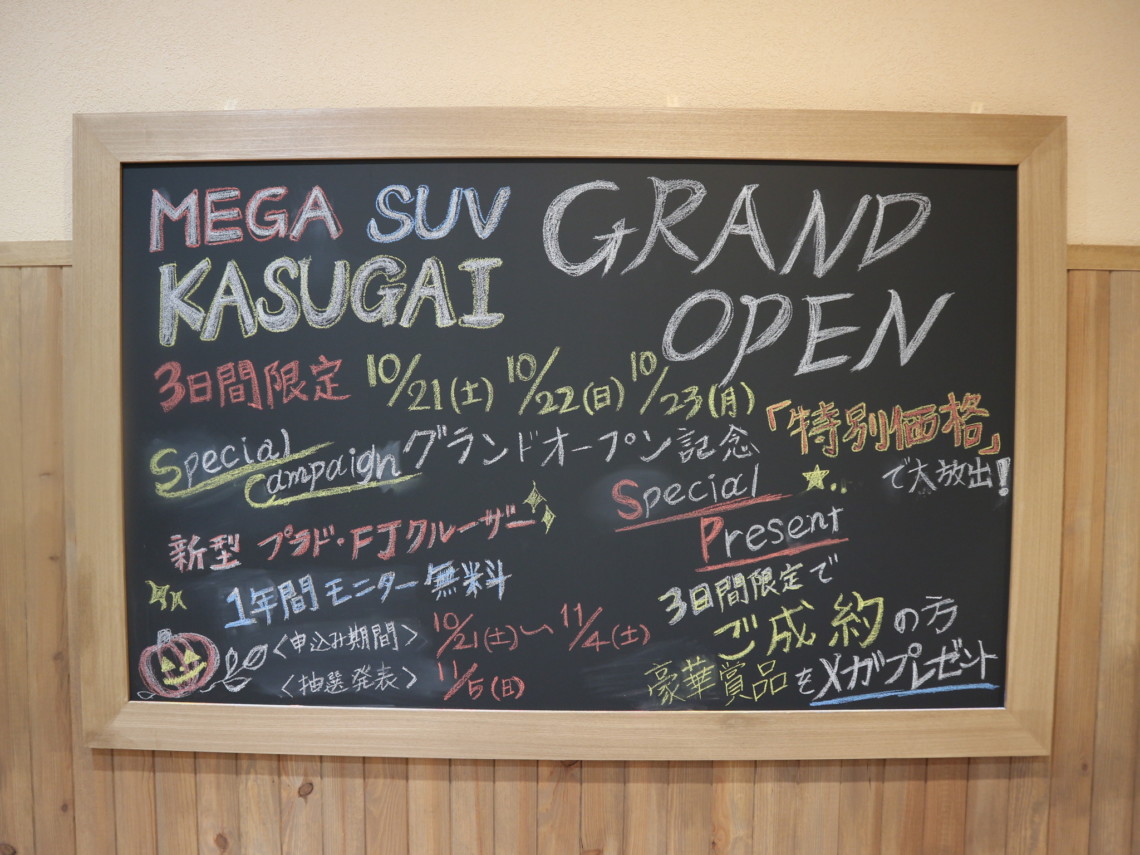 MEGA SUV
KASUGAI
GRAND
OPEN
3日間限定 10/21(土) 10/22(日) 10/23(月)
Special
Campaign グランドオープン記念
「特別価格」
で大放出!
新型 プラド・FJクルーザー
1年間モニター無料
<申込み期間> 10/21(土)〜11/4(土)
<抽選発表> 11/5(日)
Special
Present
3日間限定で
ご成約の方
豪華賞品をメガプレゼント